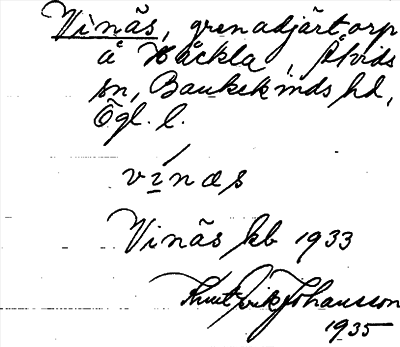 Vinäs, grenadjärtorp
å Häckla, Åtvids
sn, Bankekinds hd,
Ögl. l.
vínæs
Vinäs kb 1933
Knut Erik Johansson
1935